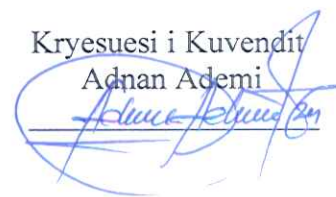 Kryesuesi i Kuvendit
Adnan Ademi